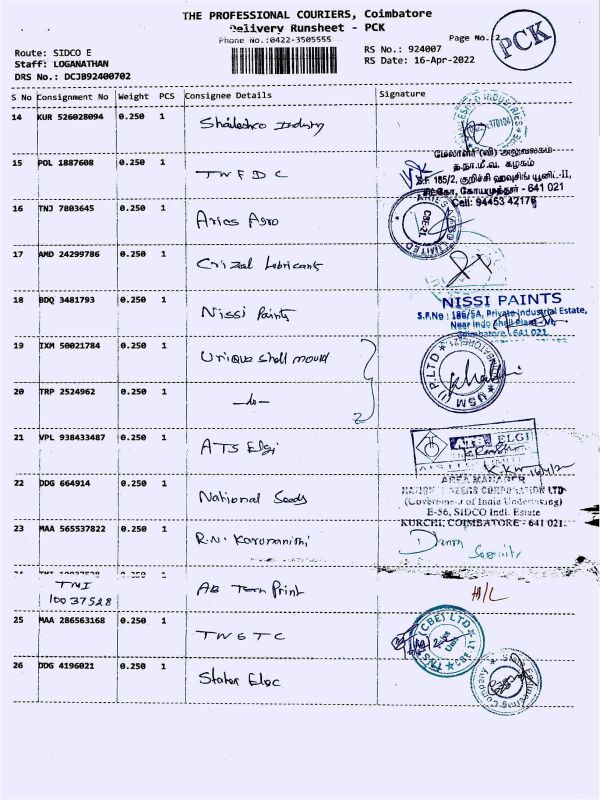 THE PROFESSIONAL COURIERS, Coimbatore
Delivery Runsheet - PCK
Phone No.:0422-3505555
Page No.:2
PCK
Route: SIDCO E
Staff: LOGANATHAN
DRS No.: DCJB92400702
RS No.: 924007
RS Date: 16-Apr-2022
S No Consignment No Weight PCS Consignee Details Signature
14 KUR 526028094 0.250 1 Shaileshco Industry
15 POL 1887608 0.250 1 TNFDC
மேலாளர் (வி) அலுவலகம்
த.நா.மீ.வ. கழகம்
S.F. 185/2, குறிச்சி ஹவுசிங் யூனிட்-II,
சிட்கோ, கோயமுத்தூர் - 641 021
Cell: 94453 42176
16 TNJ 7803645 0.250 1 Aries Agro
17 AMD 24299786 0.250 1 Crizeal Lubricants
18 BDQ 3481793 0.250 1 Nissi Paints
NISSI PAINTS
S.F.No : 186/5A, Private Industrial Estate,
Near Indo Shell Plant - IV,
Coimbatore - 641 021.
19 IXM 50021784 0.250 1 Unique shell mould
USM (I) P LTD
20 TRP 2524962 0.250 1 -do-
21 VPL 938433487 0.250 1 ATS Elgi
ATS ELGI
22 DDG 664914 0.250 1 National Seeds
AREA MANAGER
CORPORATION LTD
(Government of India Undertaking)
E-56, SIDCO Indl. Estate
KURCHI, COIMBATORE - 641 021.
23 MAA 565537822 0.250 1 R.N. Karunanithi
Security
TMI
10037528
AB Tecn Print
H/L
25 MAA 286563168 0.250 1 TNSTC
TNSTC (CBE) LTD
26 DDG 4196021 0.250 1 Stater Elec